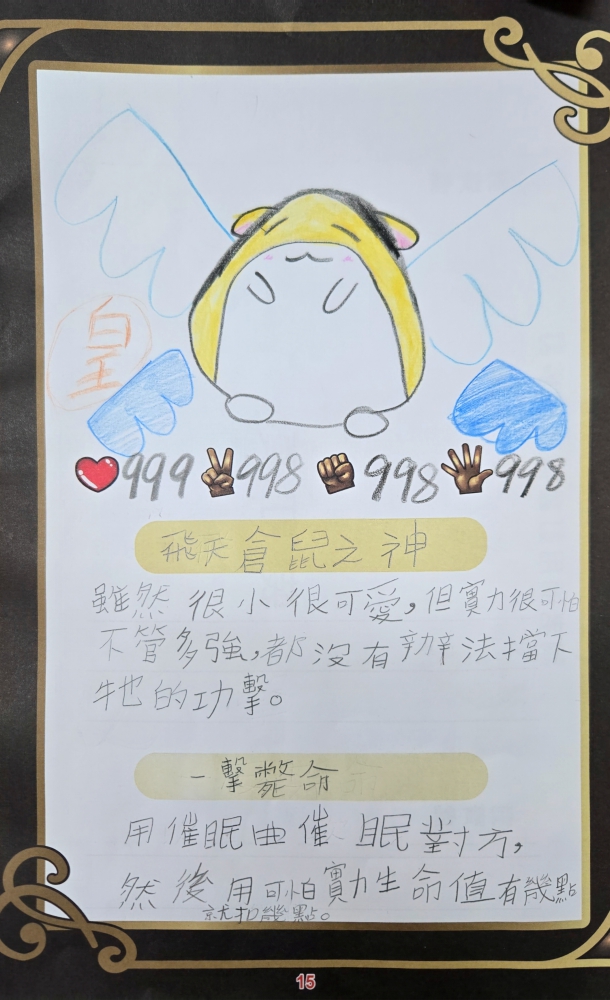 皇
999 998 998 998
飛天倉鼠之神
雖然很小很可愛，但實力很可怕
不管多強，都沒有辦法擋下
牠的功擊。
一擊斃命
用催眠曲催眠對方，
然後用可怕實力生命值有幾點
就扣幾點。
15